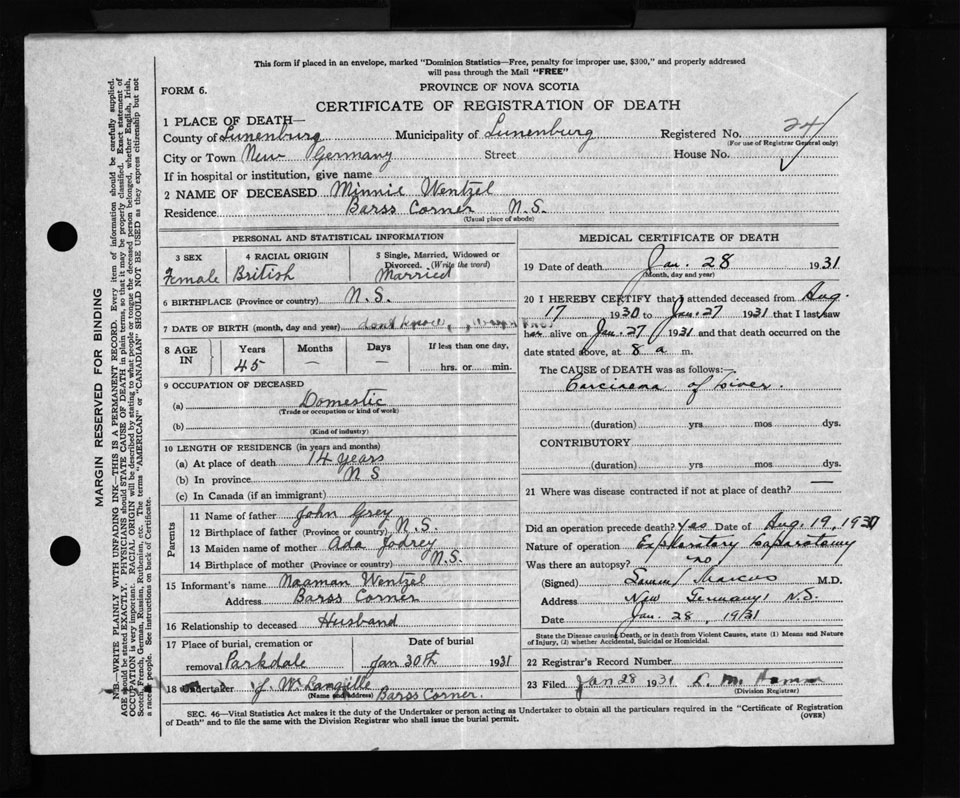 This form if placed in an envelope, marked "Dominion Statistics—Free, penalty for improper use, $300," and properly addressed
will pass through the Mail "FREE"
FORM 6.
PROVINCE OF NOVA SCOTIA
CERTIFICATE OF REGISTRATION OF DEATH
1 PLACE OF DEATH—
County of Lunenburg Municipality of Lunenburg Registered No. 24
(For use of Registrar General only)
City or Town New Germany Street House No.
If in hospital or institution, give name
2 NAME OF DECEASED Minnie Wentzel
Residence Barss Corner N.S.
(Usual place of abode)
PERSONAL AND STATISTICAL INFORMATION
3 SEX 4 RACIAL ORIGIN 5 Single, Married, Widowed or
Divorced. (Write the word)
Female British Married
6 BIRTHPLACE (Province or country) N.S.
7 DATE OF BIRTH (month, day and year) don't know
8 AGE IN Years Months Days If less than one day,
45 — — hrs. or min.
9 OCCUPATION OF DECEASED
(a) Domestic
(Trade or occupation or kind of work)
(b)
(Kind of industry)
10 LENGTH OF RESIDENCE (in years and months)
(a) At place of death 14 years
(b) In province N S
(c) In Canada (if an immigrant)
Parents
11 Name of father John Grey
12 Birthplace of father (Province or country) N.S.
13 Maiden name of mother Ada Jodrey
14 Birthplace of mother (Province or country) N.S.
15 Informant's name Naaman Wentzel
Address Barss Corner
16 Relationship to deceased Husband
17 Place of burial, cremation or Date of burial
removal Parkdale Jan 30th 1931
18 Undertaker J. Wm Langille Barss Corner.
(Name and address)
MEDICAL CERTIFICATE OF DEATH
19 Date of death Jan. 28 1931
(Month, day and year)
20 I HEREBY CERTIFY that I attended deceased from Aug.
17 1930 to Jan. 27 1931 that I last saw
her alive on Jan. 27 1931 and that death occurred on the
date stated above, at 8 a m.
The CAUSE of DEATH was as follows:
Carcinoma of Liver.
(duration) yrs mos dys.
CONTRIBUTORY
(duration) yrs mos dys.
21 Where was disease contracted if not at place of death? —
Did an operation precede death? Yes Date of Aug. 19, 193
Nature of operation Exploratory Laparotomy
Was there an autopsy? no
(Signed) Marcus M.D.
Address New Germany, N.S.
Date Jan. 28, 1931
State the Disease causing Death, or in death from Violent Causes, state (1) Means and Nature
of Injury, (2) whether Accidental, Suicidal or Homicidal.
22 Registrar's Record Number
23 Filed Jan 28 1931
(Division Registrar)
SEC. 46—Vital Statistics Act makes it the duty of the Undertaker or person acting as Undertaker to obtain all the particulars required in the "Certificate of Registration
of Death" and to file the same with the Division Registrar who shall issue the burial permit. (OVER)
MARGIN RESERVED FOR BINDING
N.B.—WRITE PLAINLY WITH UNFADING INK—THIS IS A PERMANENT RECORD. Every item of information should be carefully supplied.
AGE should be stated EXACTLY. PHYSICIANS should STATE CAUSE OF DEATH in plain terms, so that it may be properly classified. Exact statement of
OCCUPATION is very important. RACIAL ORIGIN will be described by stating to what people or tongue the deceased person belonged, whether English, Irish,
Scotch, French, German, Russian, Ruthenian, etc. The terms "AMERICAN" or "CANADIAN" SHOULD NOT BE USED as they express citizenship but not
a race or people. See instructions on back of Certificate.